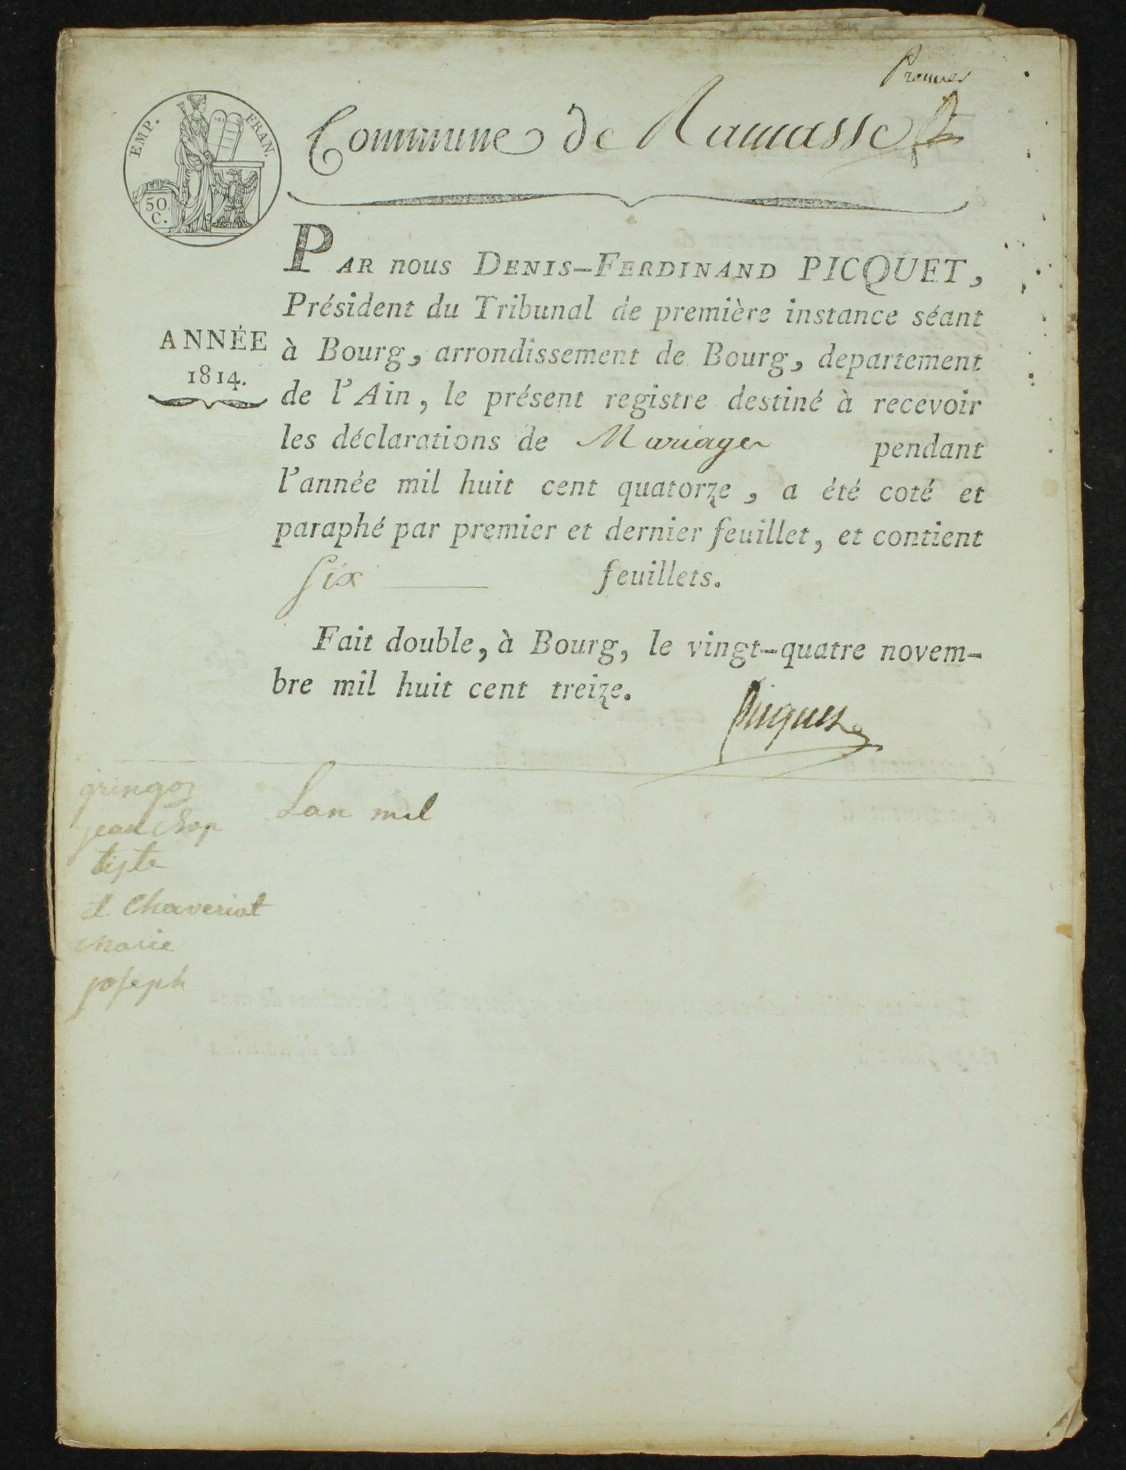 Premier
EMP. FRAN.
50
C.
Commune de Ramasse
PAR nous DENIS-FERDINAND PICQUET,
Président du Tribunal de première instance séant
à Bourg, arrondissement de Bourg, departement
de l'Ain, le présent registre destiné à recevoir
les déclarations de Mariages pendant
l'année mil huit cent quatorze, a été coté et
paraphé par premier et dernier feuillet, et contient
six feuillets.
ANNÉE
1814.
Fait double, à Bourg, le vingt-quatre novem-
bre mil huit cent treize.
Picquet
gringoz
jean Bap
tiste
et Chaveriat
marie
joseph
Lan mil